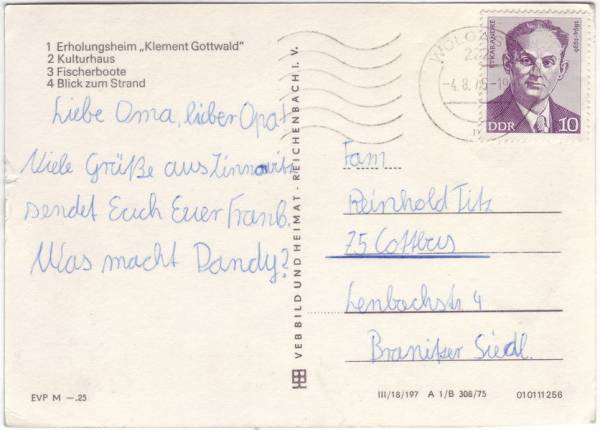 1 Erholungsheim „Klement Gottwald"
2 Kulturhaus
3 Fischerboote
4 Blick zum Strand
Liebe Oma, lieber Opa!
Viele Grüße aus Zinnowitz
sendet Euch Euer Frank.
Was macht Dandy?
VEB BILD UND HEIMAT · REICHENBACH I. V.
WOLGAST
-4.8.75-10
DDR 10
Fam
Reinhold Titz
75 Cottbus
Lenbachstr 4
Branitzer Siedl.
EVP M —.25
III/18/197 A 1/B 306/75 010111256